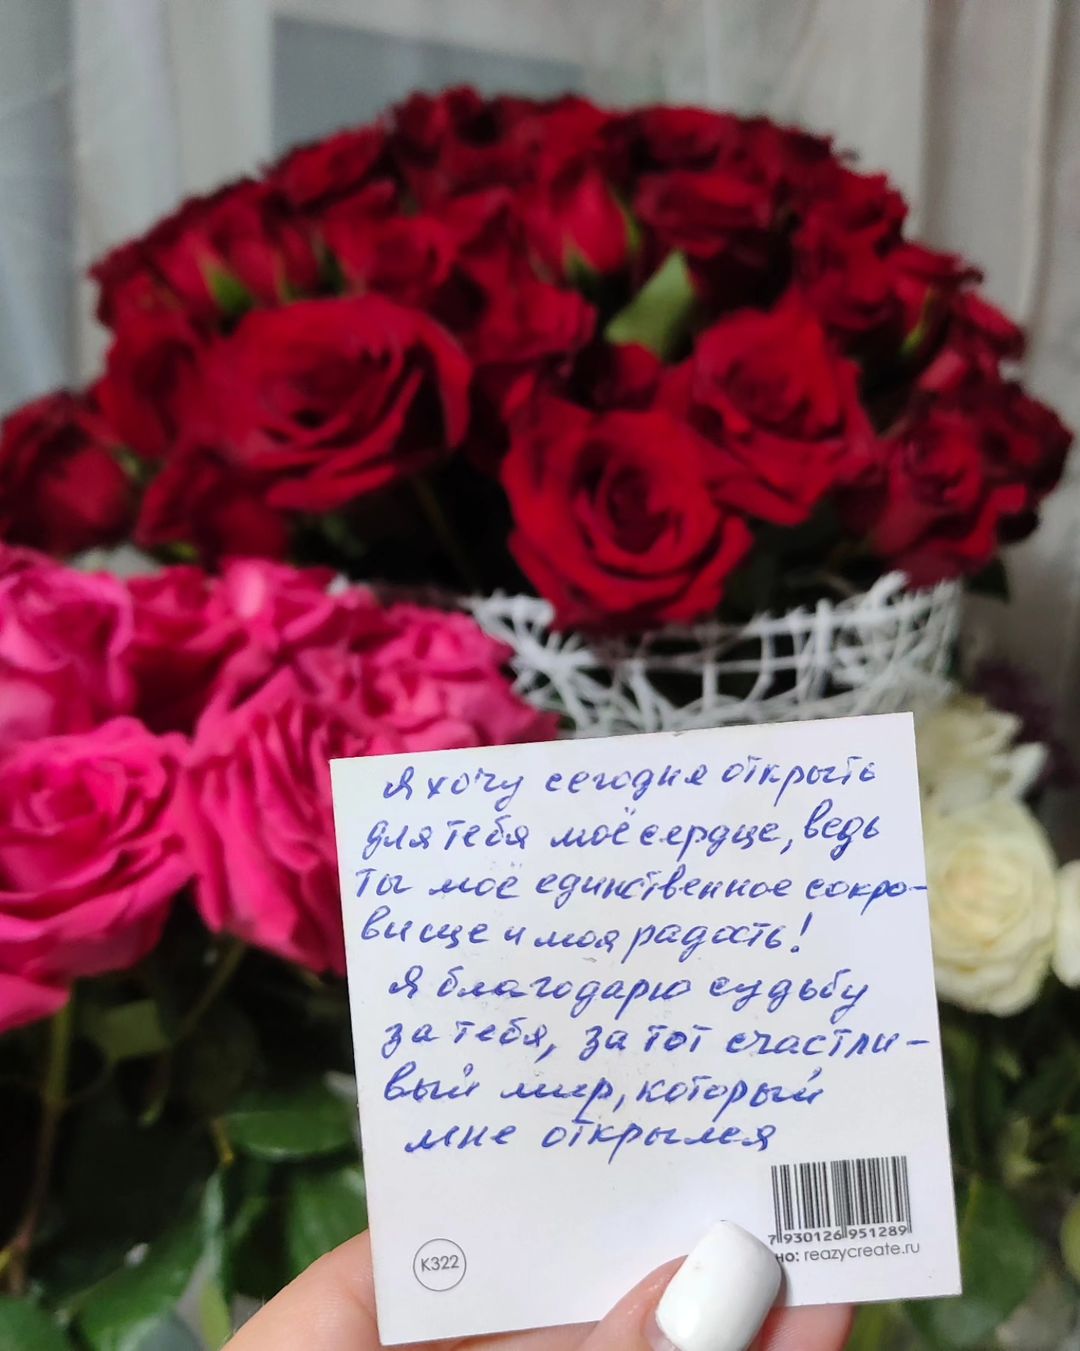 Я хочу сегодня открыть
для тебя моё сердце, ведь
ты моё единственное сокро-
вище и моя радость!
Я благодарю судьбу
за тебя, за тот счастли-
вый мир, который
мне открылся
7 930126 951289
но: reazycreate.ru
К322